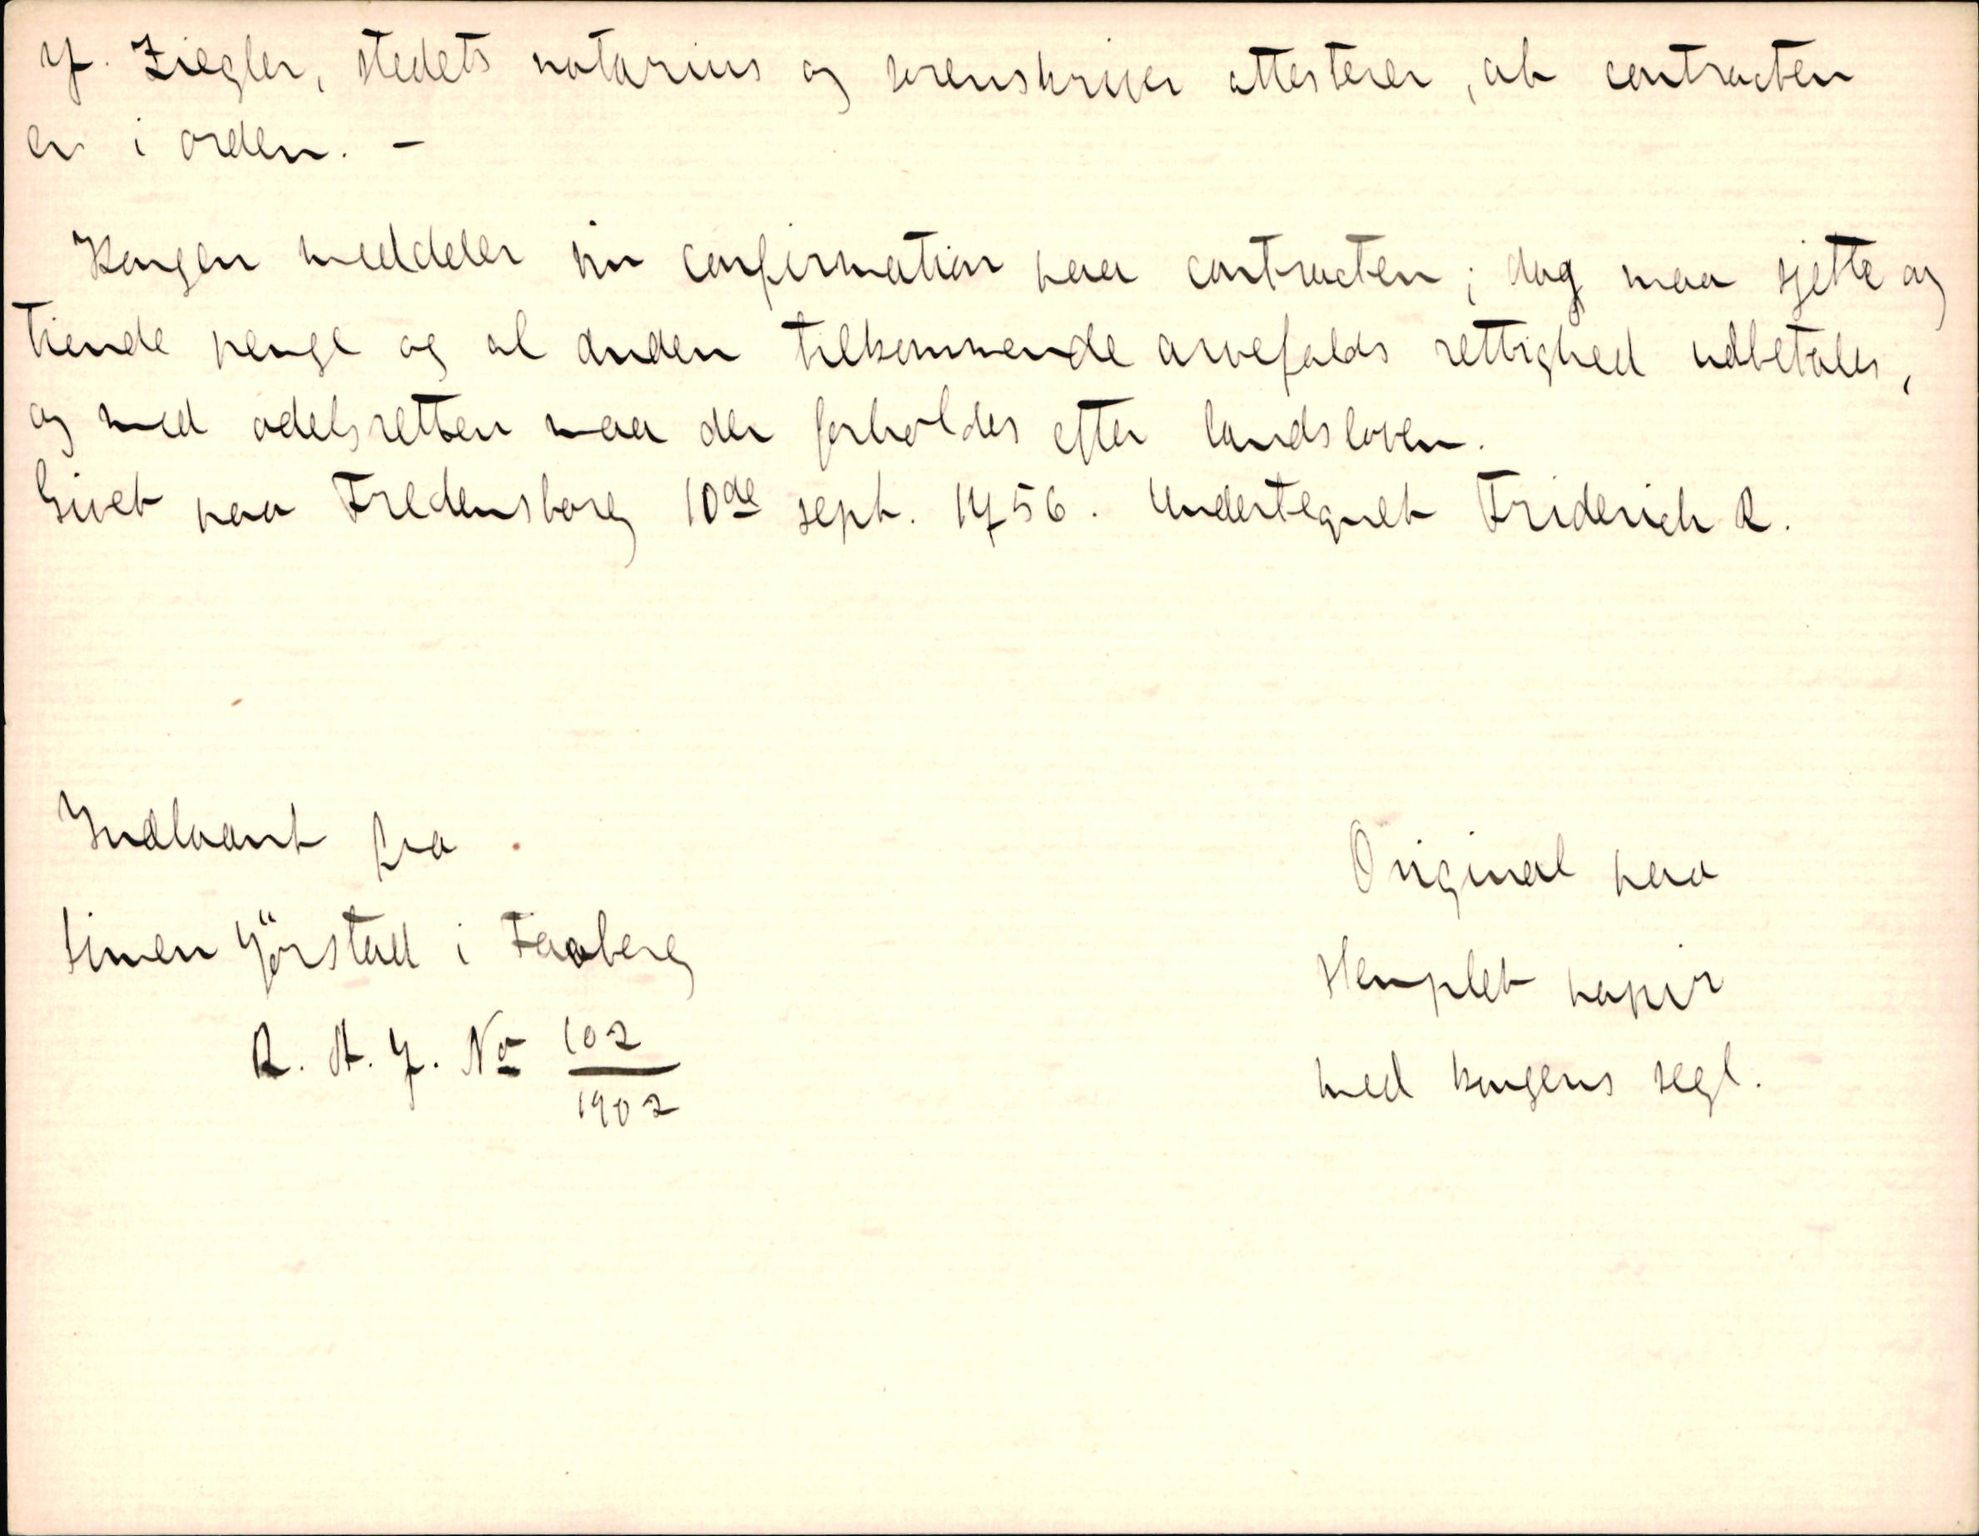 J. Ziegler, stedets notarius og sorenskriver attesterer, at contracten
er i orden. -
Kongen meddeler sin confirmation paa contracten; dog maa sjette og
tiende penge og al anden tilkommende arvefalds rettighed udbetales,
og med odelsretten maa der forholdes efter landsloven.
Givet paa Fredensborg 10de sept. 1756. Undertegnet Friderich R.
Indlaant fra
Simen Jörstad i Faaberg
R. A. J. No 102
1902
Original paa
stemplet papir
med kongens segl.